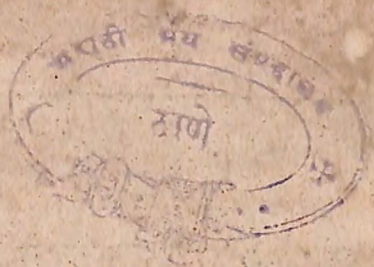 मराठी ग्रंथ संग्रहालय
ठाणे